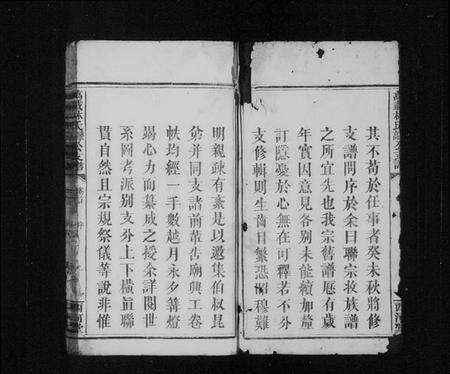 其不苟於任事者癸未秋將修
支譜問序於余曰聯宗收族譜
之所宜先也我宗舊譜歷有歲
年實因意見各別未能續加釐
訂隱憂於心無在可釋若不分
支修輯則生齒日繁恐昭穆難
明親疎有素是以邀集伯叔昆
弟并同支諸前輩告廟興工卷
帙均經一手數越月永夕篝燈
竭心力而纂成之授余詳閱世
系圖考派別支分上下橫直聯
貫自然且宗規祭儀等說非惟